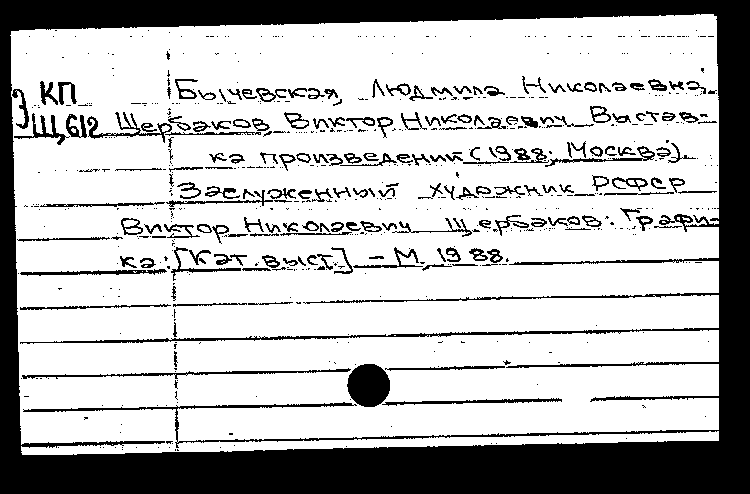 КП Бычевская, Людмила Николаевна,
З Щ,612 Щербаков, Виктор Николаевич. Выстав-
ка произведений (1988; Москва).
Заслуженный художник РСФСР
Виктор Николаевич Щербаков: Графи-
ка: [Кат. выст.] – М., 1988.